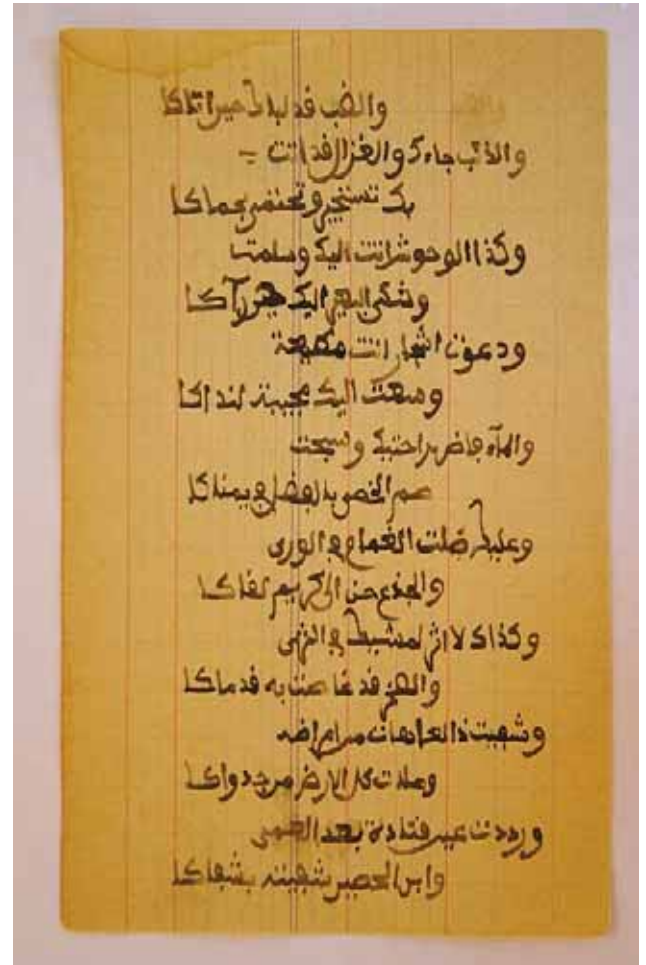 والضب قد لباك حين اتاكا
والذئب جاءك والغزال قد اتت
بك تستجير وتحتمى بحماكا
وكذا الوحوش اتت اليك وسلمت
وشكى البعير اليك حين رآكا
ودعوت اشجار اتت مطيعة
وسعت اليك مجيبة لنداكا
والمآء فاض براحتيك وسبحت
صم الحصى بالفضل في يمناكا
وعليك ضلت الغمام في الورى
والجذع حن الى كريم لقاكا
وكذاك لا اثر لمشيك في الثرى
والصخر قد غاصت به قدماكا
وشفيت ذا العاهات من امراضه
وملات كل الارض من جدواكا
ورددت عين قتادة بعد العمى
وابن الحصين شفيته بشفاكا